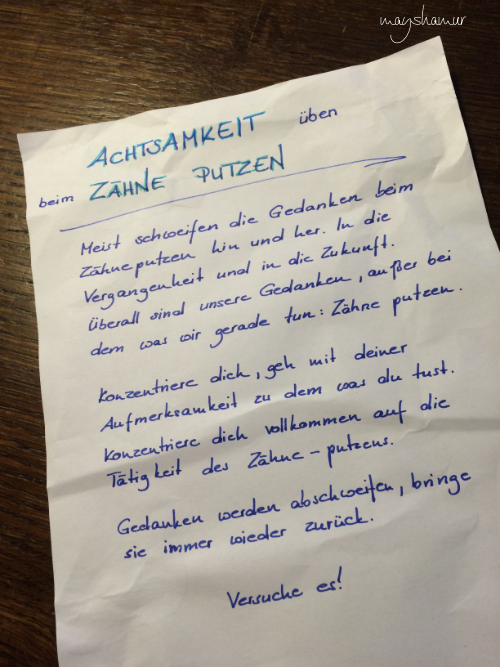 mayshamur
ACHTSAMKEIT üben
beim ZÄHNE PUTZEN
Meist schweifen die Gedanken beim
Zähneputzen hin und her. In die
Vergangenheit und in die Zukunft.
Überall sind unsere Gedanken, außer bei
dem was wir gerade tun: Zähne putzen.
Konzentriere dich, geh mit deiner
Aufmerksamkeit zu dem was du tust.
Konzentriere dich vollkommen auf die
Tätigkeit des Zähne-putzens.
Gedanken werden abschweifen, bringe
sie immer wieder zurück.
Versuche es!